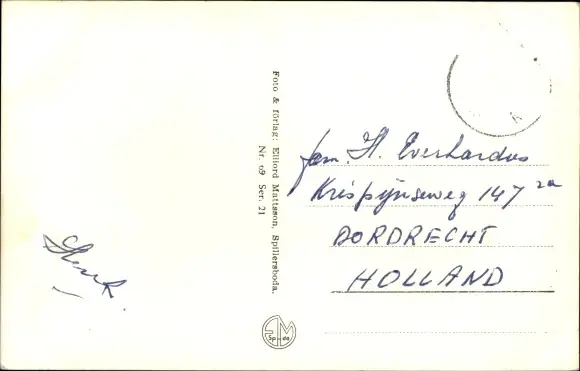 Foto & förlag: Eiliord Mattsson, Spillersboda.
Nr. 69 Ser. 21
fam. H. Everhardus
Krispijnseweg 147 2a
DORDRECHT
HOLLAND
Henk